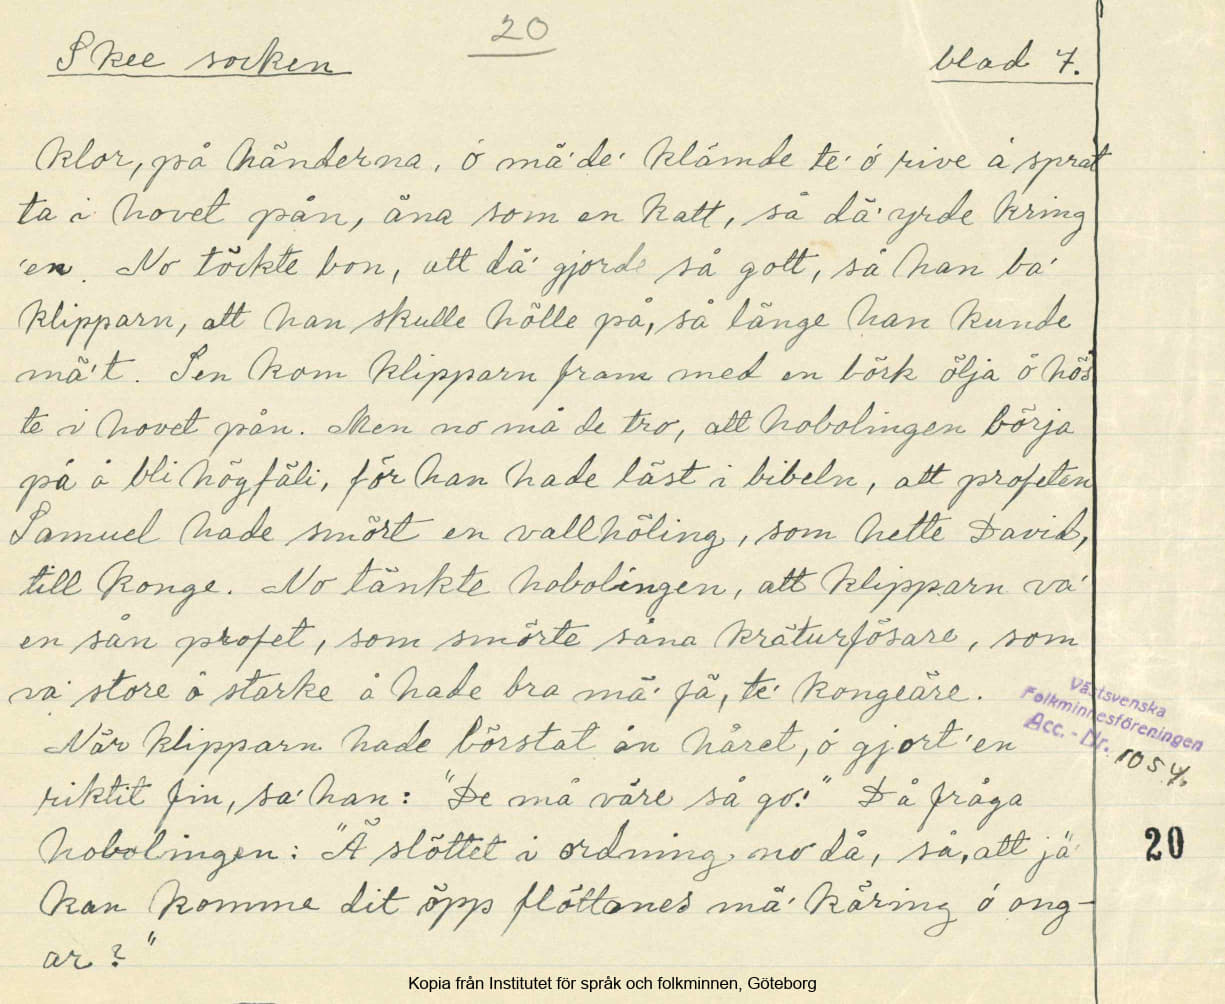 20
Skee socken
blad 7.
klor, på händerna, ó mä' de' klämde te' ó rive å sprat
ta i hovet pån, äna som en katt, så dä' yrde kring
'en. No töckte bon, att dä' gjorde så gott, så han ba'
klipparn, att han skulle hölle på, så länge han kunde
mä't. Sen kom klipparn fram med en börk ölja ö hös
te i hovet pån. Men no må de tro, att hobolingen börja
på å bli högfäli, för han hade läst i bibeln, att profeten
Samuel hade smört en vallhöling, som hette David,
till konge. No tänkte hobolingen, att klipparn va'
en sån profet, som smörte såna kräturfösare, som
va' store å starke å hade bra mä' fä, te' kongeäre.
När klipparn hade börstat ån håret, ó gjort 'en
riktit fin, sa' han: "De må våre så go!" Då fråga
hobolingen: "Ä slöttet i ordning no då, så, att jä'
kan komme dit öpp flöttanes mä' kåring ó ong-
ar?"
Västsvenska
Folkminnesföreningen
Acc. - Nr. 1054.
20
Kopia från Institutet för språk och folkminnen, Göteborg